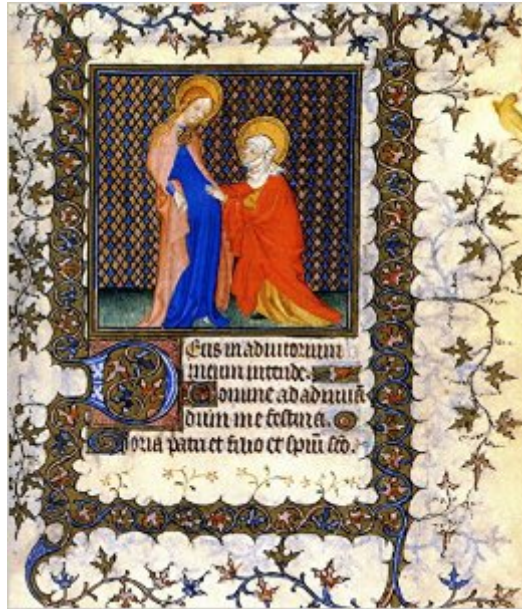 DEus in adiutorium
meum intende.
Domine ad adiuuā
dum me festina.
Gloria patri et filio et spiũ scō.